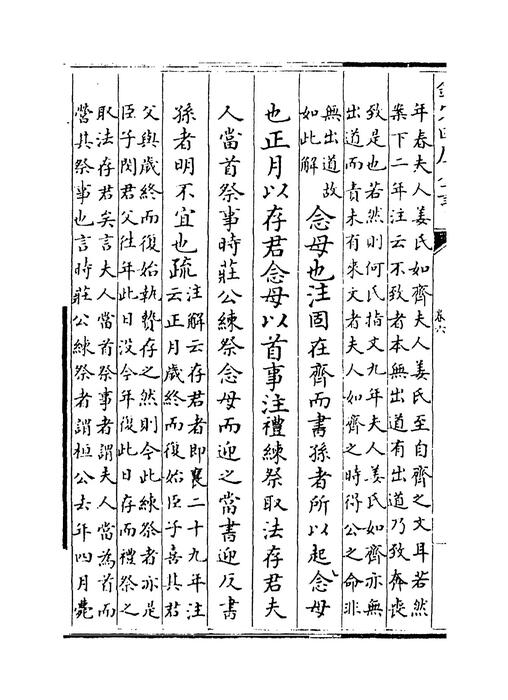 年春夫人姜氏如齊夫人姜氏至自齊之文耳若然
案下二年注云不致者本無出道有出道乃致奔喪
致是也若然則何氏指文九年夫人姜氏如齊亦無
出道而責未有來文者夫人如齊之時得公之命非
無出道故
如此解
念母也注固在齊而書孫者所以起念母
也正月以存君念母以首事注禮練祭取法存君夫
人當首祭事時莊公練祭念母而迎之當書迎反書
孫者明不宜也疏
注解云存君者即襄二十九年注
云正月歲終而復始臣子喜其君
父與歲終而復始執贄存之然則今此練祭者亦是
臣子閔君父往年此日没今年復此日存而禮祭之
取法存君矣言夫人當首祭事者謂夫人當為首而
營其祭事也言時莊公練祭者謂桓公去年四月薨
卷六